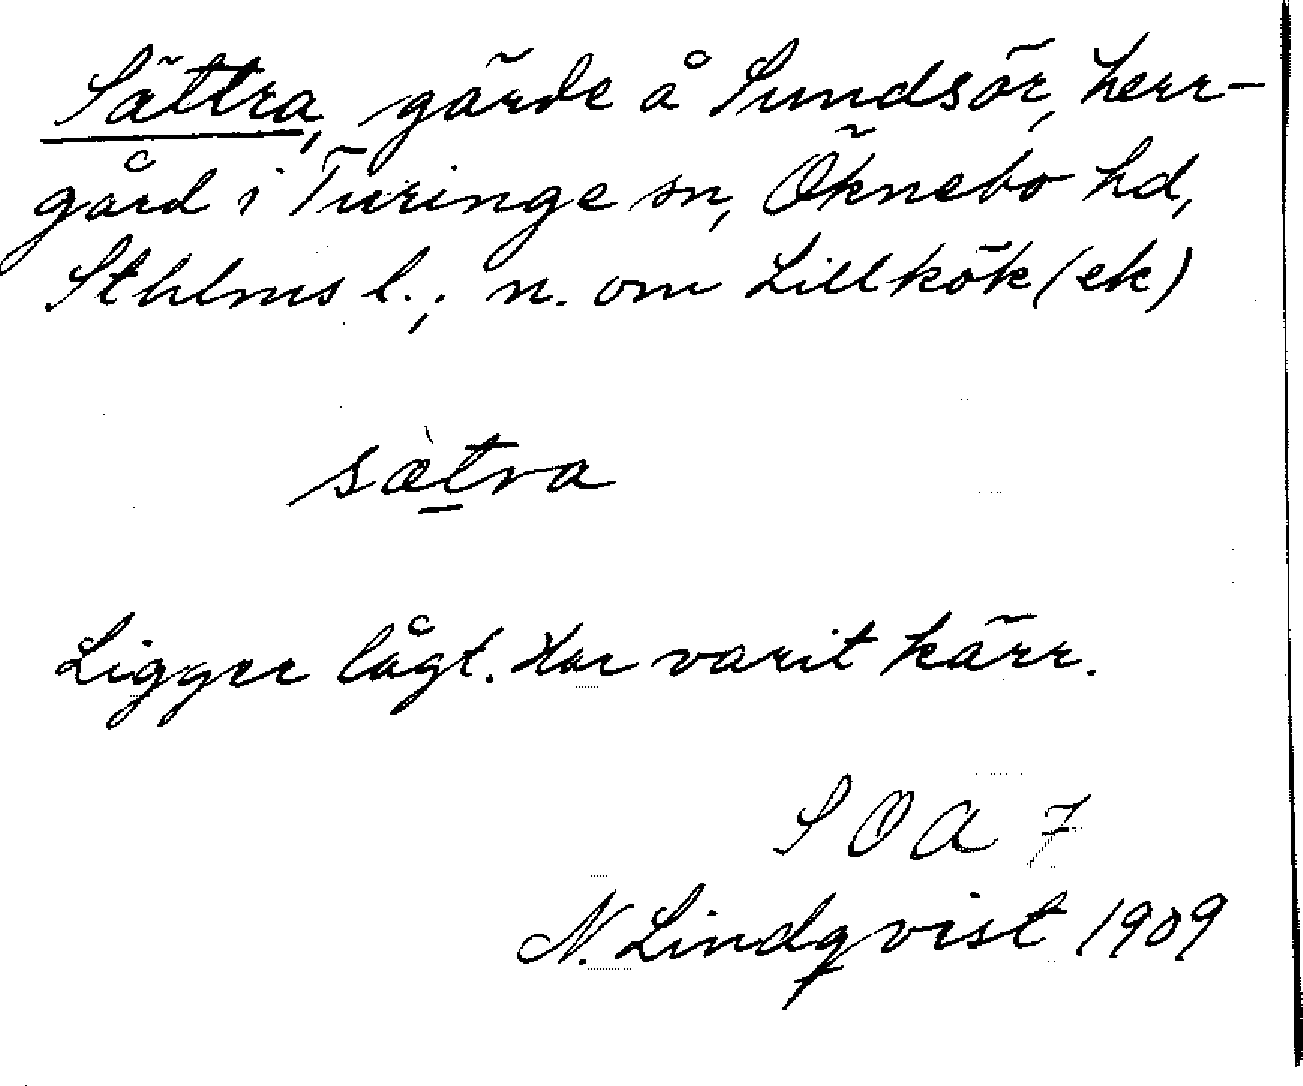 Sättra, gärde å Sundsör, herr-
gård i Turinge sn, Öknebo hd,
Sthlms l.; n. om Lillkök (ek)
sæ̀t̲ra
Ligger lågt. Har varit kärr.
SOA 7
N. Lindqvist 1909